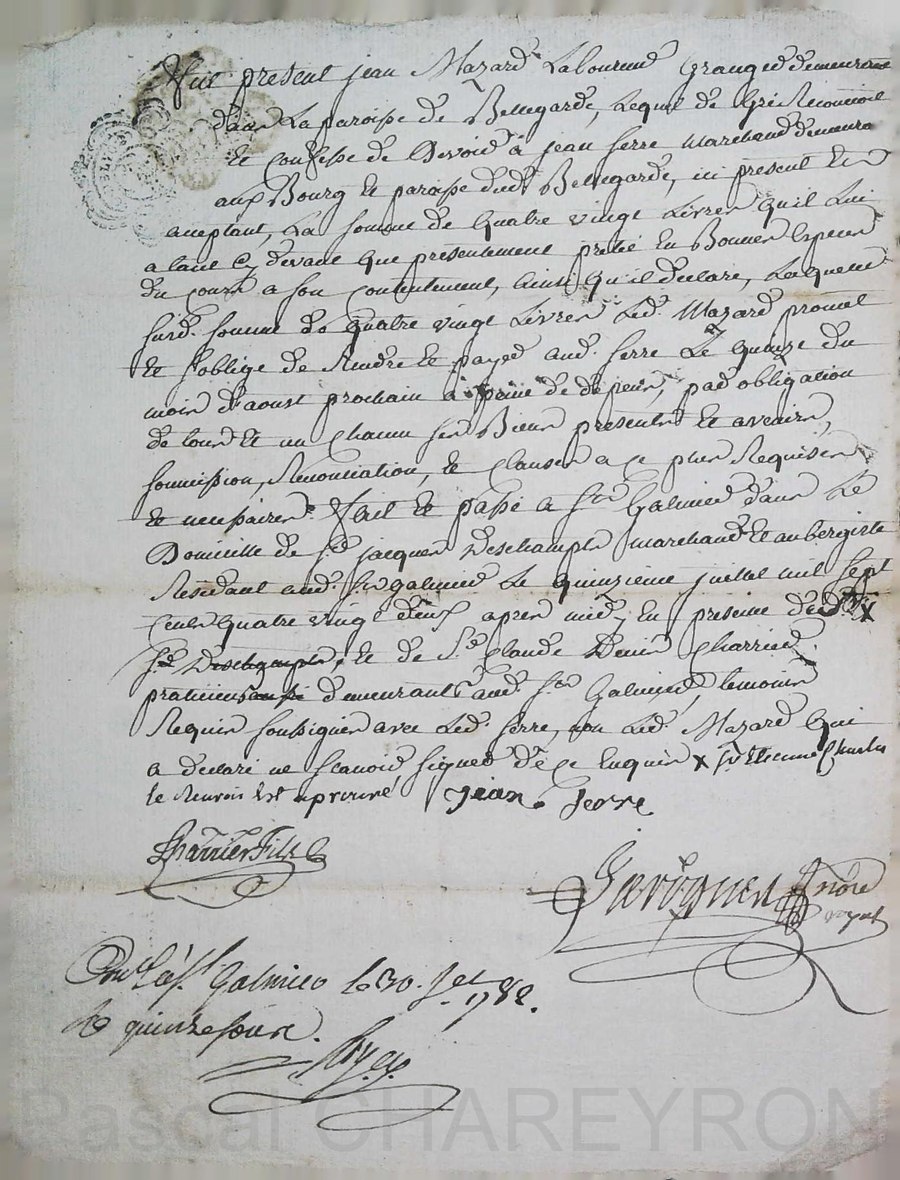 Fut present jean Mazard Laboureur Granger demeurant
dans La paroisse de Bellegarde, Lequel de Gré Reconnoit
et confesse de devoir a jean ferre marchand demeurant
aux Bourg et paroisse dud. Bellegarde, icy present et
aceptant, La somme de quatre vingt Livres quil Lui
a tant cy devant que presentement preté en Bonnes Especes
du cours a son contentement, ainsi qu'il declare, Laquelle
susd. somme de quatre vingt Livres Led. Mazard promet
et s'oblige de Rendre et payer aud. ferre Le quinze du
mois d'aoust prochain a peine de depens, par obligation
de tous et un chacun ses Biens presents et avenirs,
soumission, Renonciation, et clauses a ce plus Requises
et necessaires. Fait et passé a St Galmier dans Le
Domicille de Sr jacques Deschamps marchand et aubergiste
Residant aud. St galmier Le quinzieme juillet mil sept
cents quatre vingt deux apres midy En presence dud. X
Sr Deschamps, et de Sr Claude Denis Charrier
praticiens demeurants aud. St Galmier, temoins
Requis soussignés avec Led. ferre, non Led. Mazard qui
a declaré ne scavoir signer de ce Enquis X Sr Etienne Charles
le Renvois Est aprouvé jean ferre
Charrier Fils
nore
royal
Con.lé à St Galmier le 30. Jet 1782.
R quinze sous.